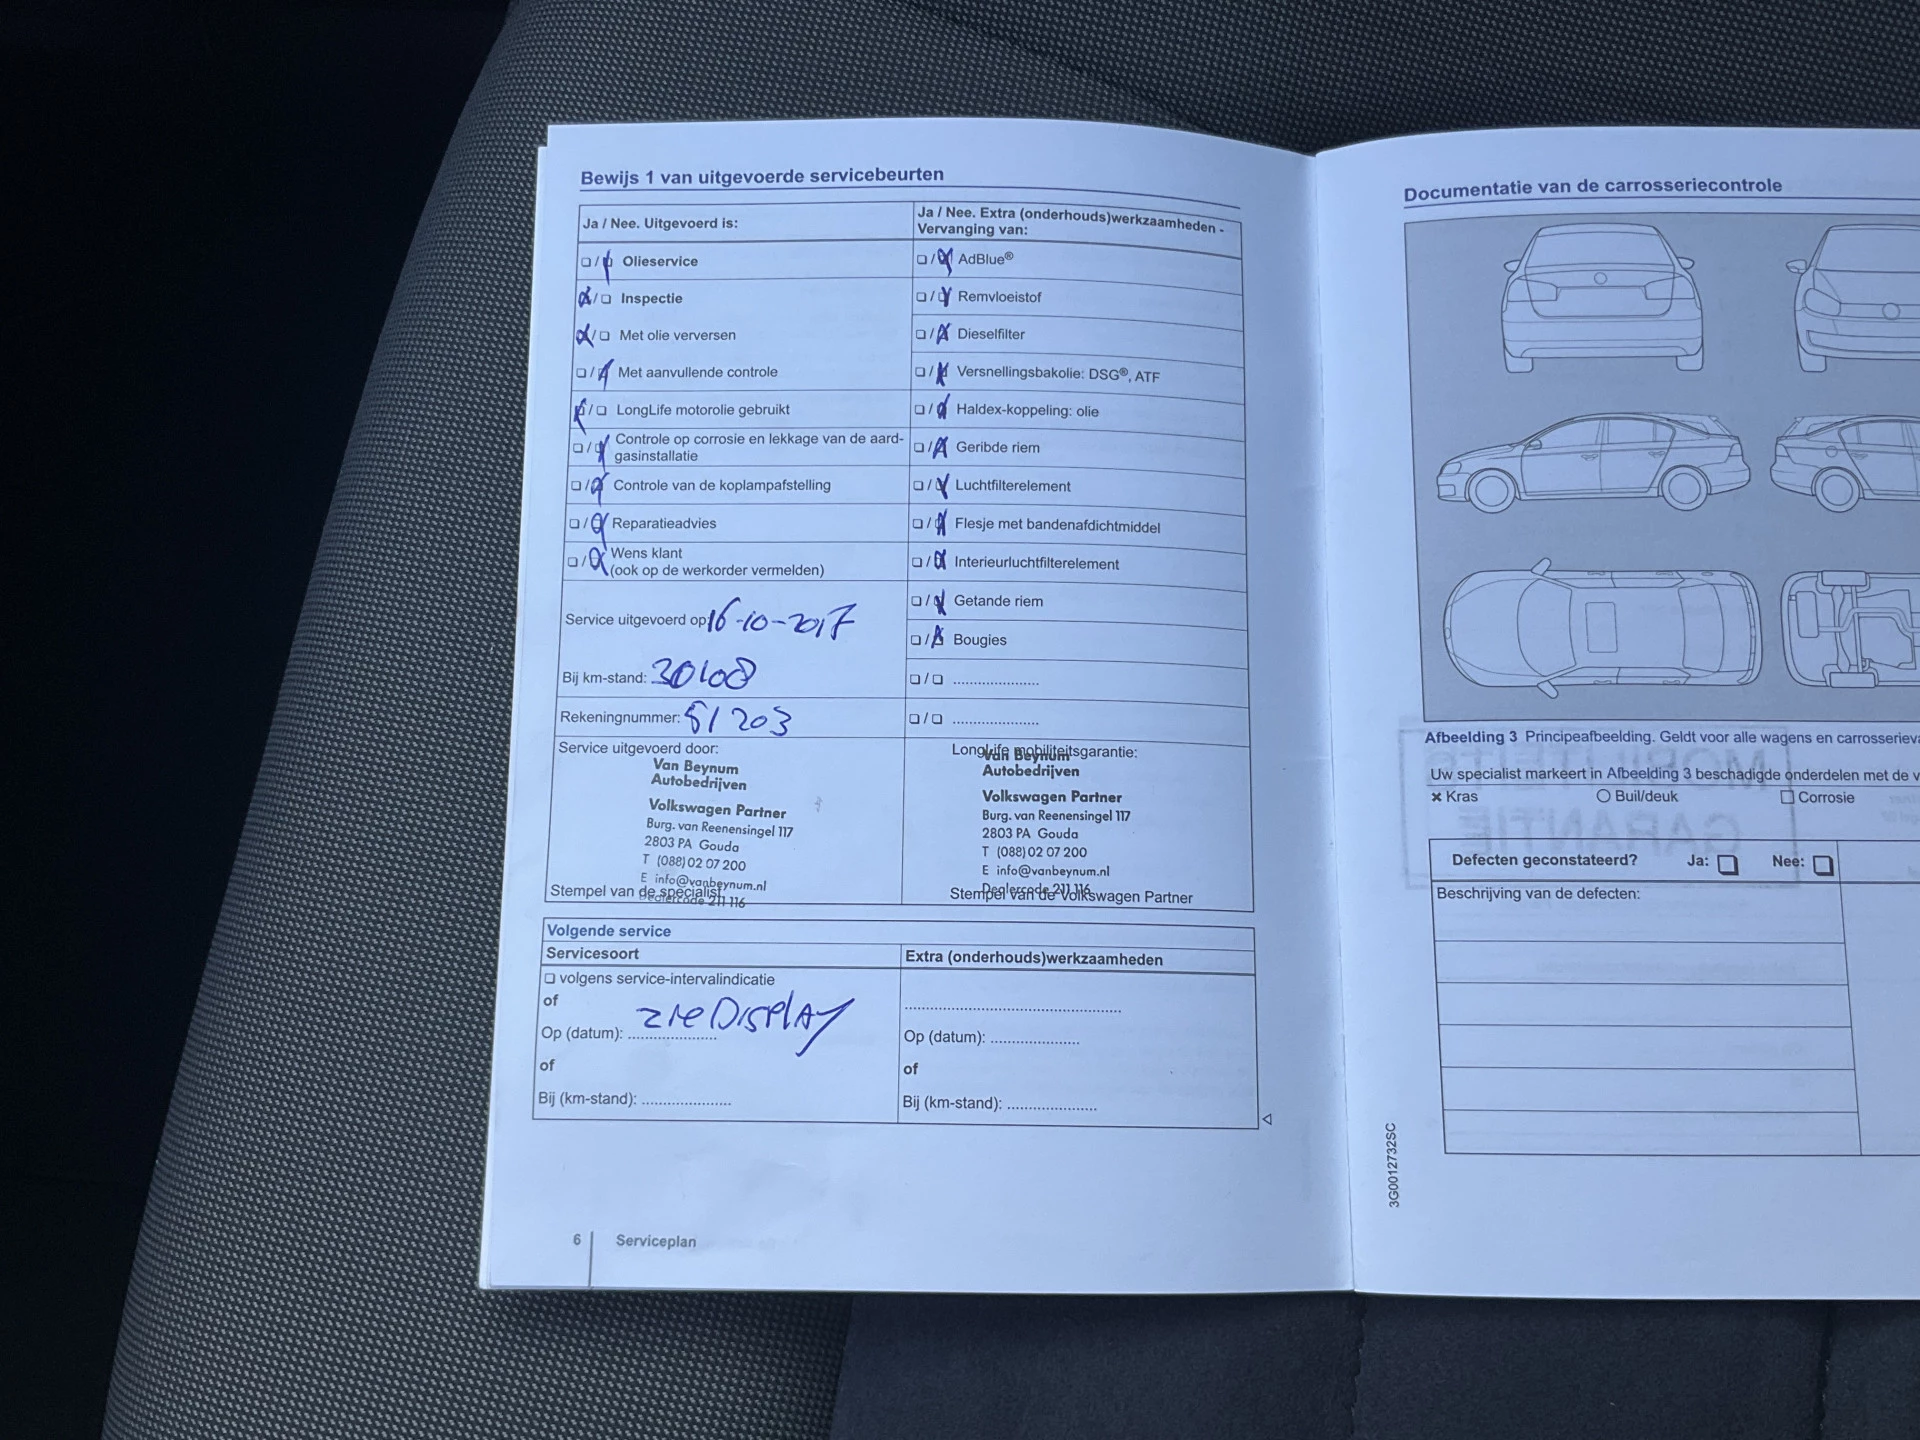 Bewijs 1 van uitgevoerde servicebeurten
Ja / Nee. Uitgevoerd is:
Olieservice
Inspectie
Met olie verversen
Met aanvullende controle
LongLife motorolie gebruikt
Controle op corrosie en lekkage van de aard-
gasinstallatie
Controle van de koplampafstelling
Reparatieadvies
Wens klant
(ook op de werkorder vermelden)
Service uitgevoerd op: 16-10-2017
Bij km-stand: 30108
Rekeningnummer: 51203
Service uitgevoerd door:
Van Beynum
Autobedrijven
Volkswagen Partner
Burg. van Reenensingel 117
2803 PA Gouda
T (088) 02 07 200
E info@vanbeynum.nl
Dealercode 211 116
Stempel van de specialist
Ja / Nee. Extra (onderhouds)werkzaamheden -
Vervanging van:
AdBlue®
Remvloeistof
Dieselfilter
Versnellingsbakolie: DSG®, ATF
Haldex-koppeling: olie
Geribde riem
Luchtfilterelement
Flesje met bandenafdichtmiddel
Interieurluchtfilterelement
Getande riem
Bougies
.....................
.....................
LongLife mobiliteitsgarantie:
Van Beynum
Autobedrijven
Volkswagen Partner
Burg. van Reenensingel 117
2803 PA Gouda
T (088) 02 07 200
E info@vanbeynum.nl
Dealercode 211 116
Stempel van de Volkswagen Partner
Volgende service
Servicesoort
volgens service-intervalindicatie
of
zie Display
Op (datum): .....................
of
Bij (km-stand): .....................
Extra (onderhouds)werkzaamheden
.....................
Op (datum): .....................
of
Bij (km-stand): .....................
6 Serviceplan
Documentatie van de carrosseriecontrole
Afbeelding 3 Principeafbeelding. Geldt voor alle wagens en
Uw specialist markeert in Afbeelding 3 beschadigde onderdelen met de
× Kras
Buil/deuk
Corrosie
MOBILITEITS
GARANTIE
Defecten geconstateerd? Ja: Nee:
Beschrijving van de defecten:
3G0012732SC